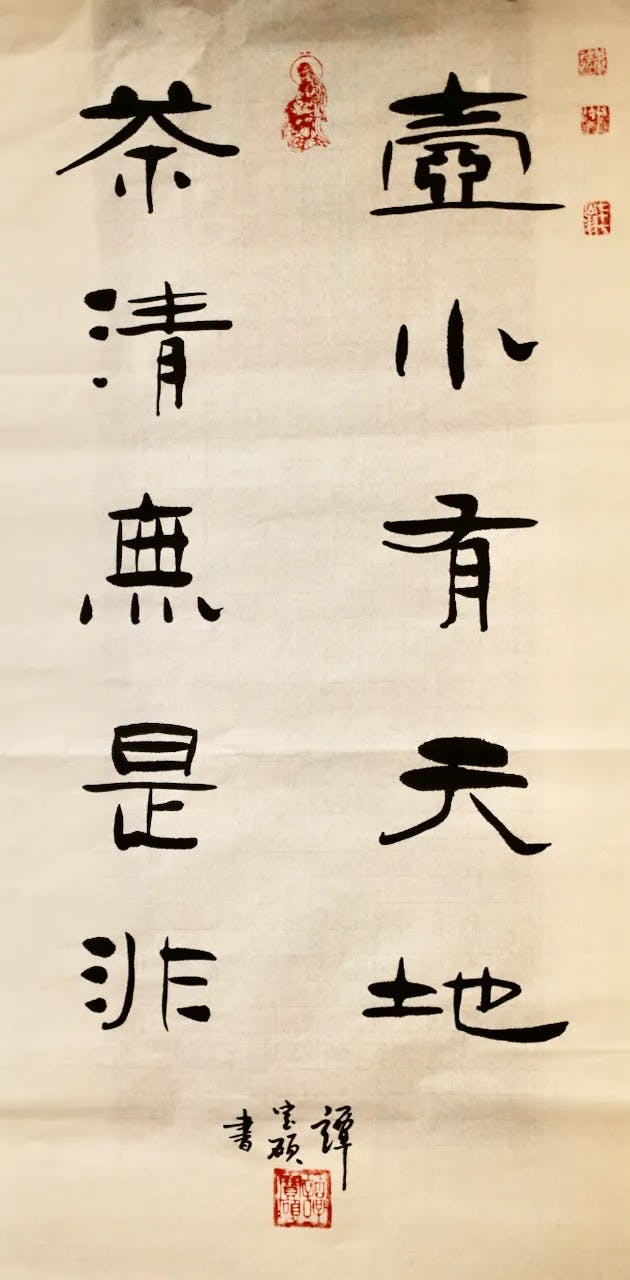 壺小有天地
茶清無是非
譚宝硕書